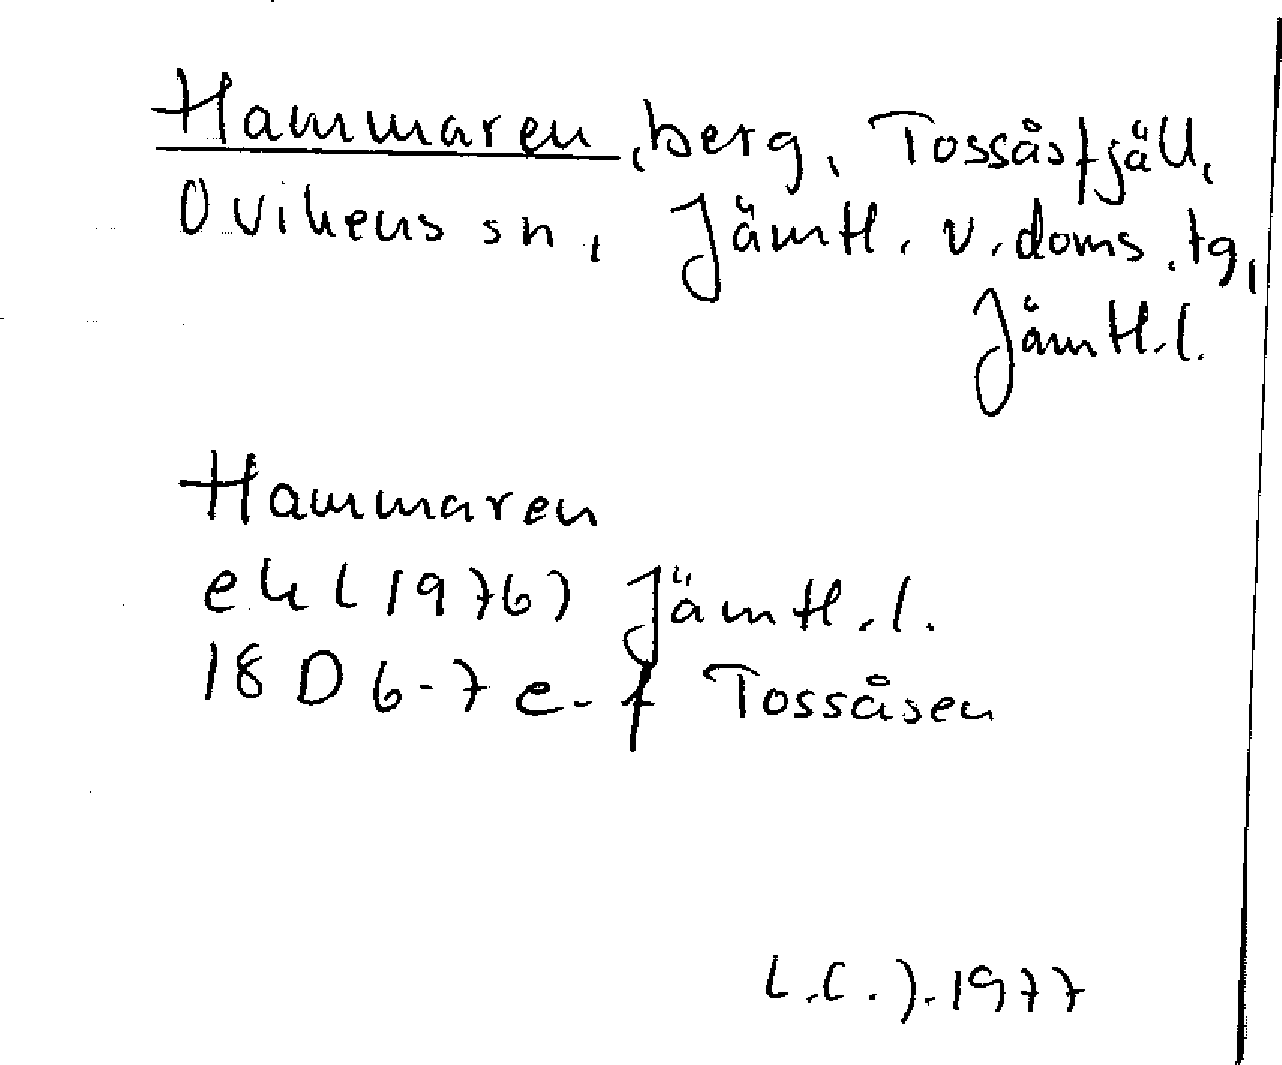 Hammaren, berg, Tossåsfjäll,
Ovikens sn, Jämtl. v. doms. tg,
Jämtl. l.
Hammaren
ek (1976) Jämtl. l.
18 D 6-7 e-f Tossåsen
L.C.J. 1977